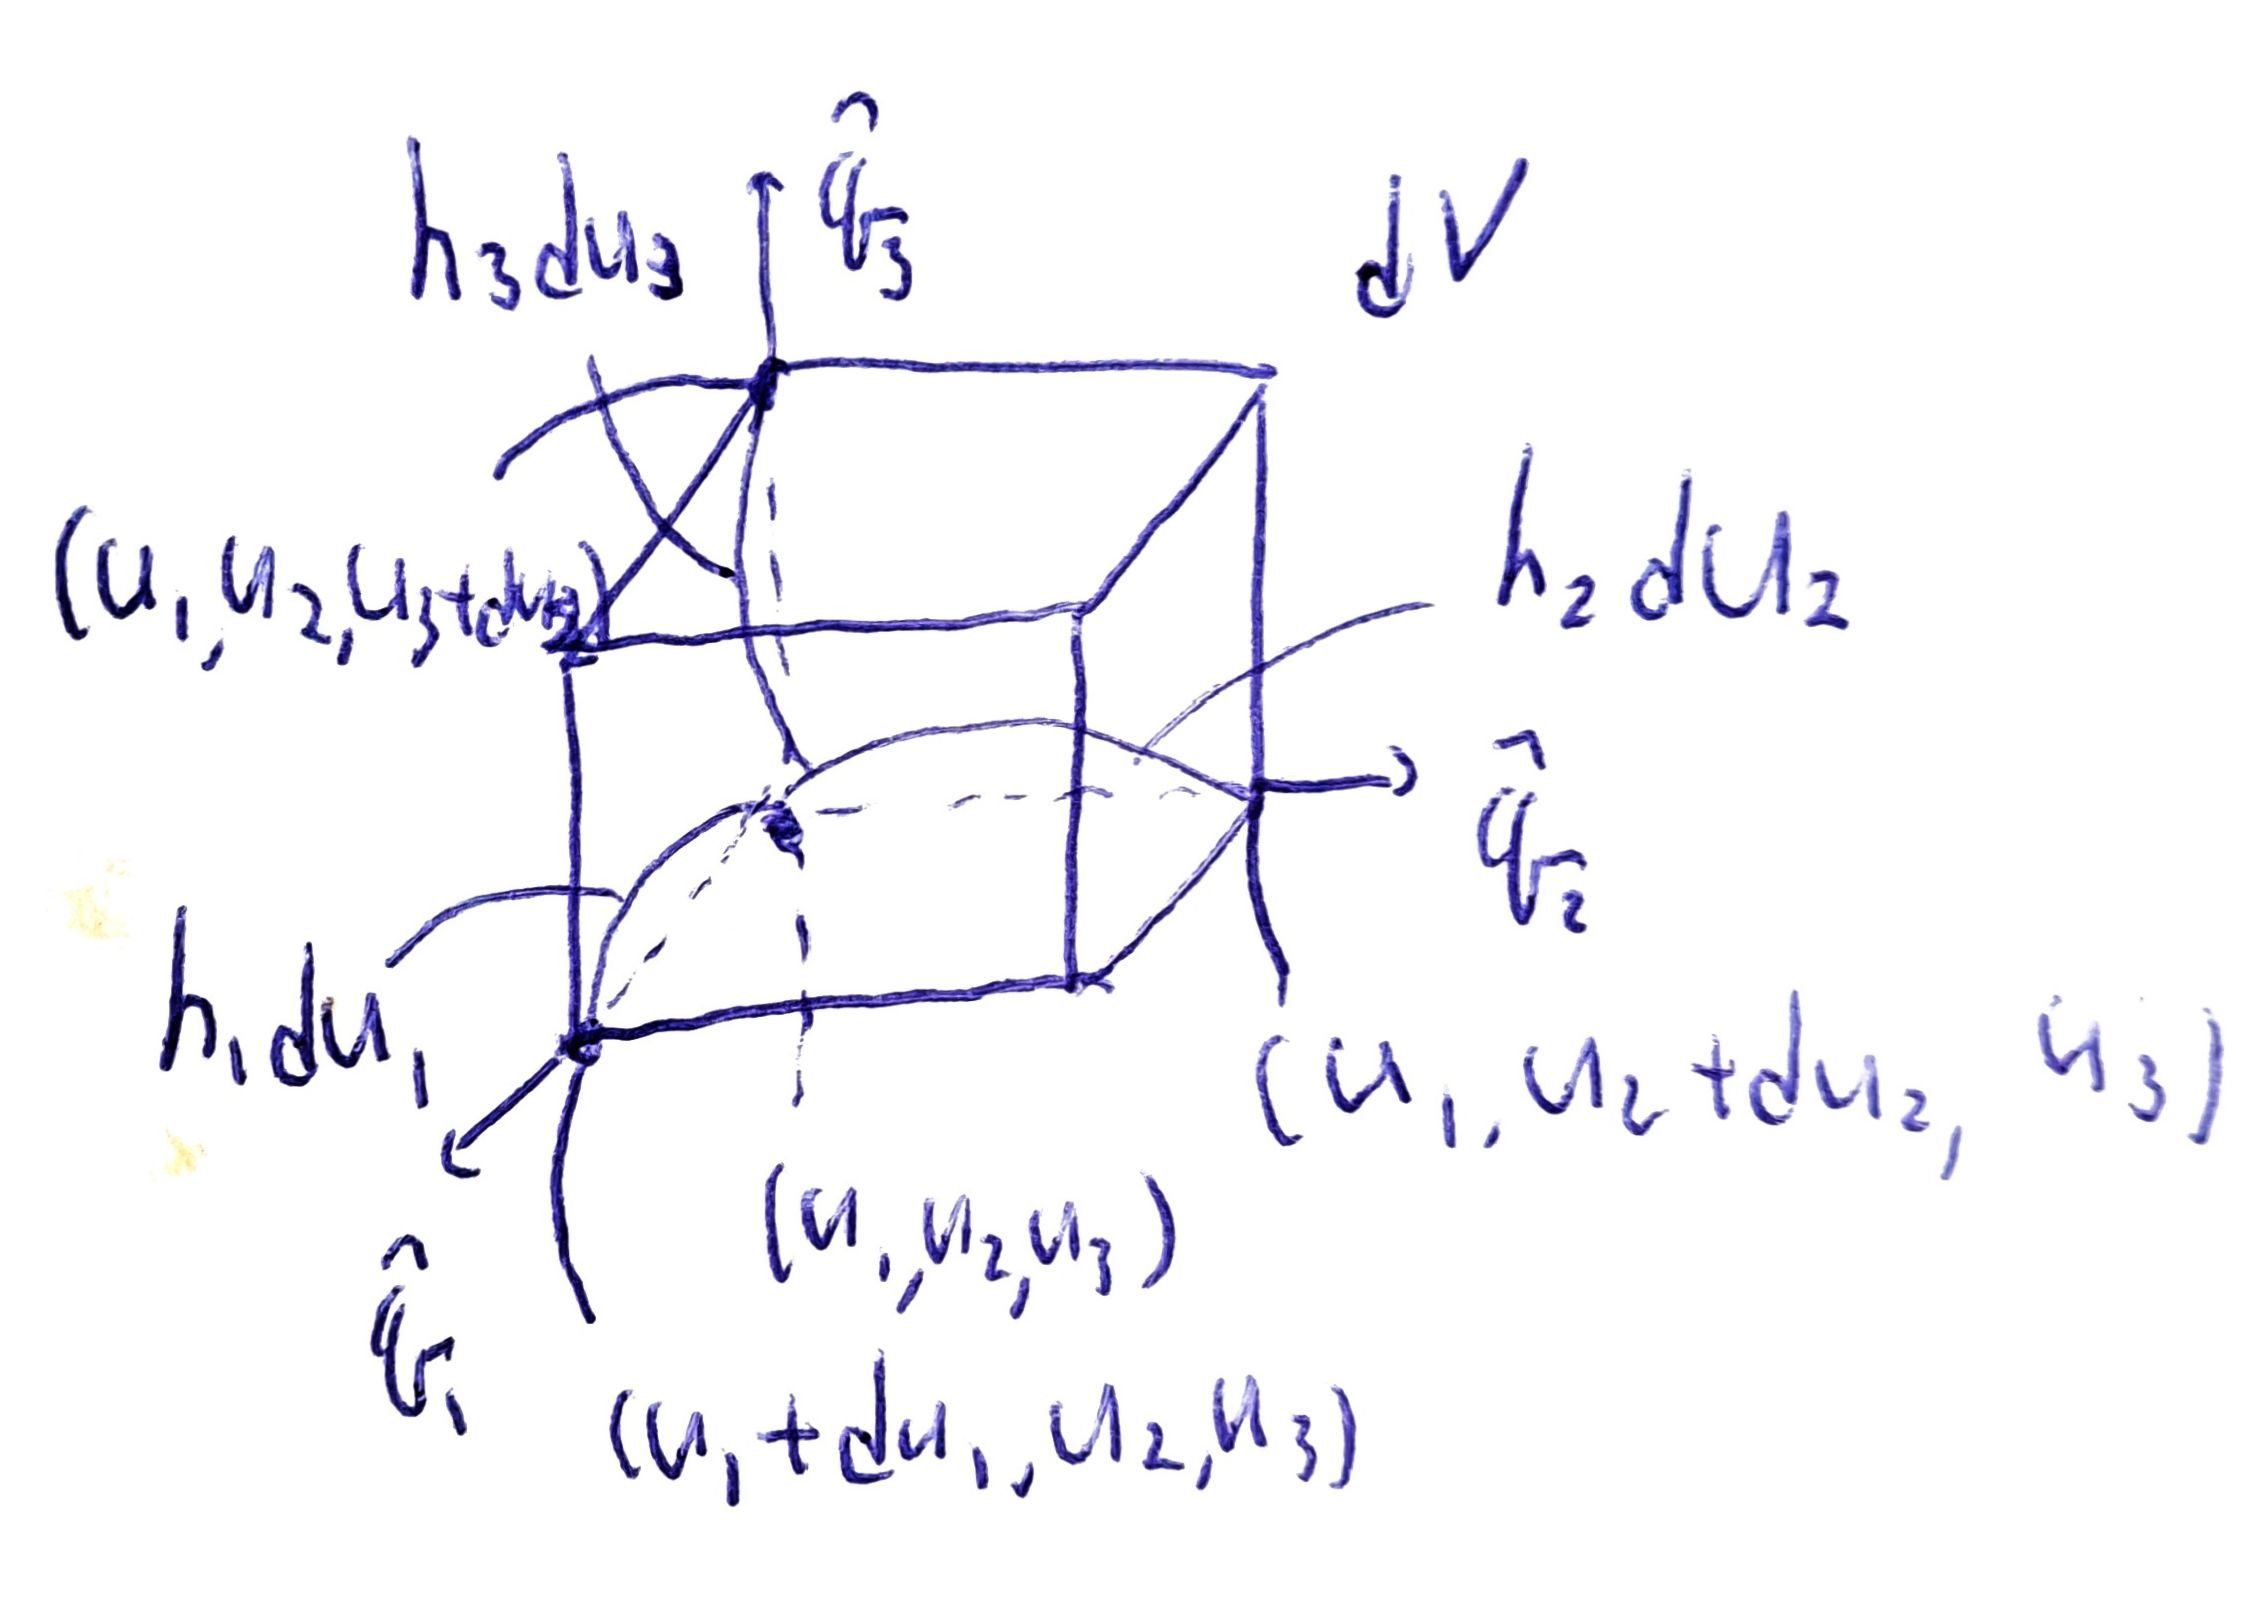 h₃du₃
q̂₃
dV
(u₁,u₂,u₃+du₃)
h₂du₂
q̂₂
h₁du₁
(u₁,u₂+du₂, u₃)
(u₁,u₂,u₃)
q̂₁
(u₁+du₁,u₂,u₃)